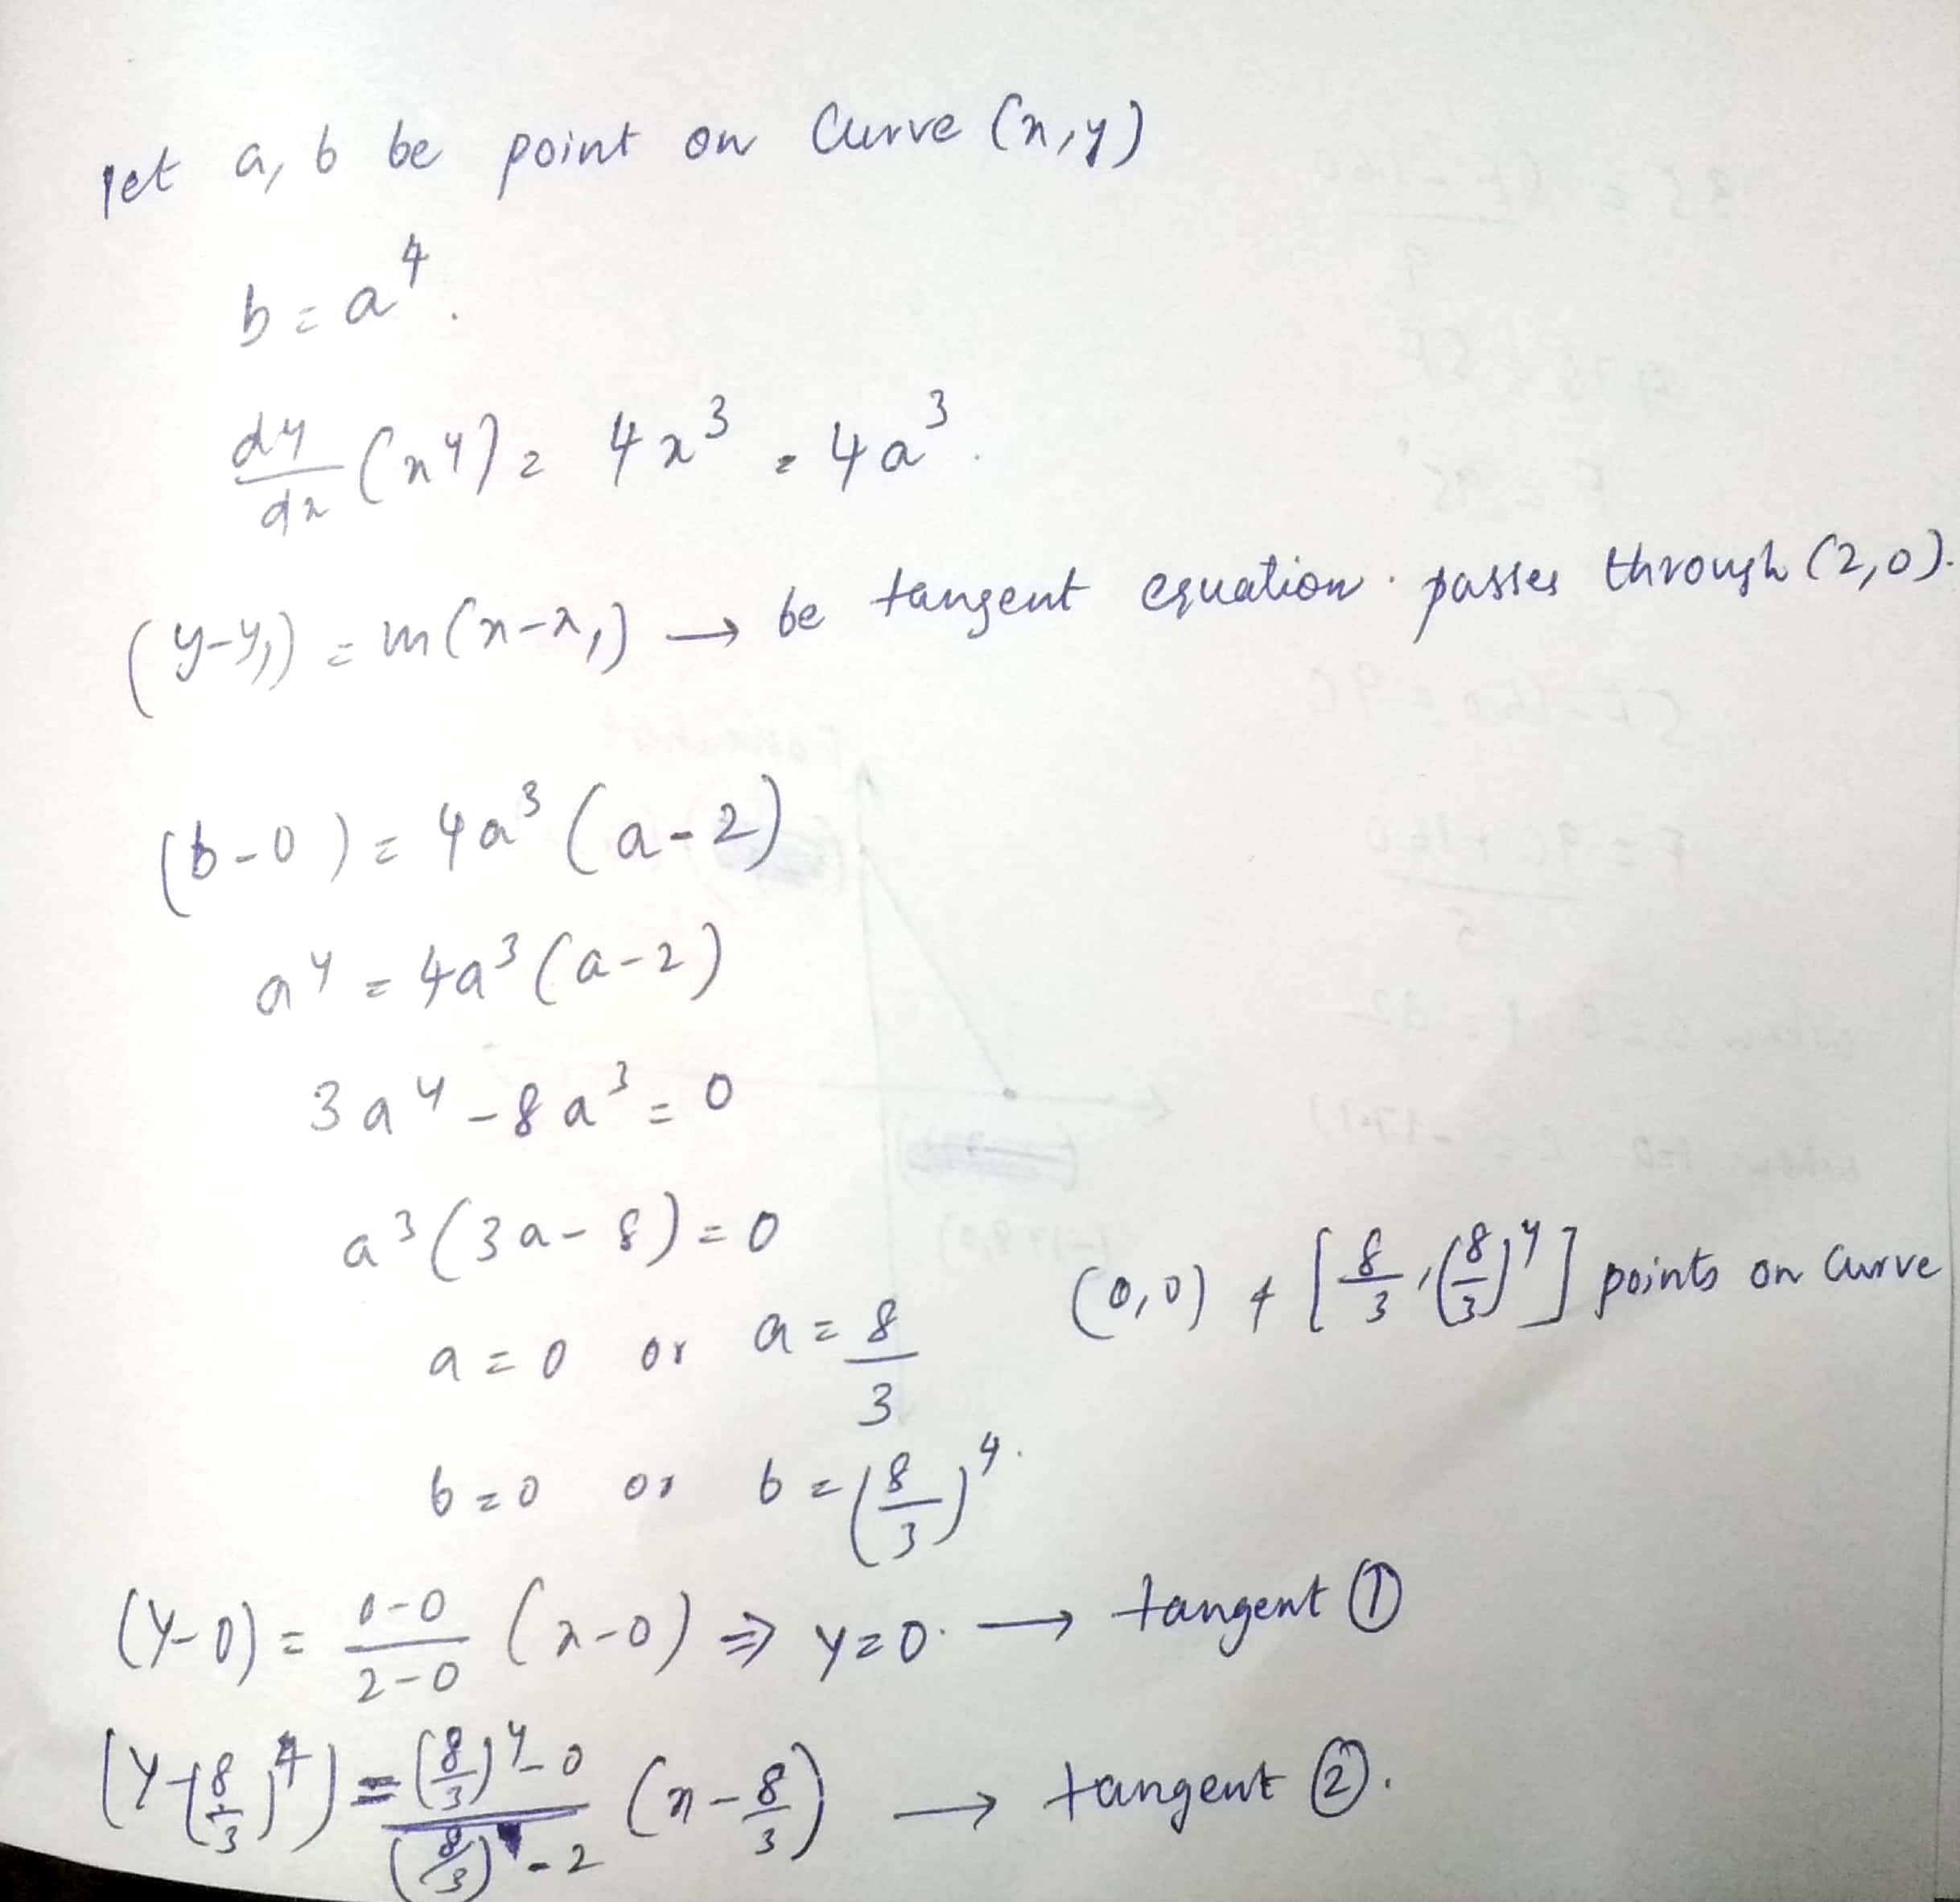 let a, b be point on Curve (x,y)
b = a^4.
dy/dx (x^4) = 4x^3 = 4a^3.
(y-y1) = m(x-x1) → be tangent equation. passes through (2,0).
(b-0) = 4a^3 (a-2)
a^4 = 4a^3 (a-2)
3a^4 - 8a^3 = 0
a^3 (3a-8) = 0
a=0 or a = 8/3
(0,0) + [8/3, (8/3)^4] points on Curve
b=0 or b = (8/3)^4.
(y-0) = 0-0/2-0 (x-0) ⇒ y=0. → tangent ①
(y-(8/3)^4) = (8/3)^4-0/(8/3)-2 (x-8/3) → tangent ②.